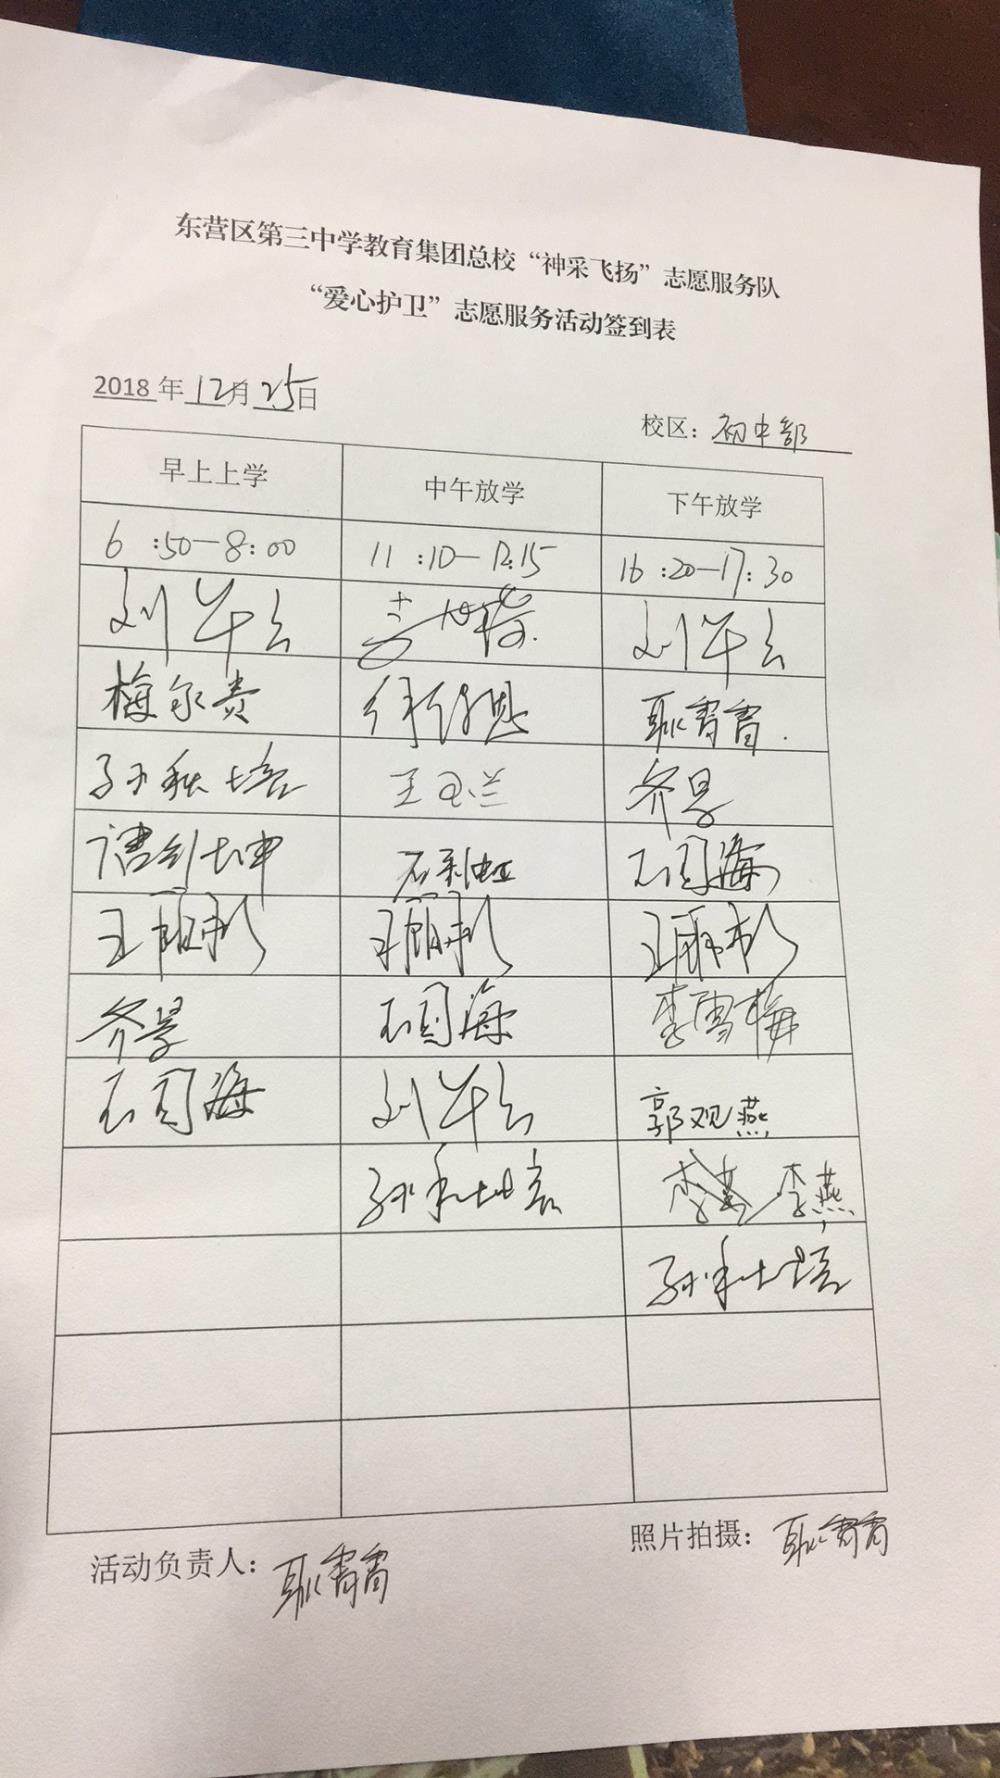 东营区第三中学教育集团总校“神采飞扬”志愿服务队
“爱心护卫”志愿服务活动签到表
2018年12月25日
校区：初中部
早上上学 中午放学 下午放学
6:50-8:00 11:10-12:15 16:20-17:30
刘军云 刘军云
梅尔贵 耿霄霄.
孙秋培 王玉兰 齐景
石利虹 石国海
王丽彩 王丽彩 王丽彩
齐景 石国海 李雪梅
石国海 刘军云 郭观燕
孙秋培 李燕
孙秋培
活动负责人：耿霄霄
照片拍摄：耿霄霄